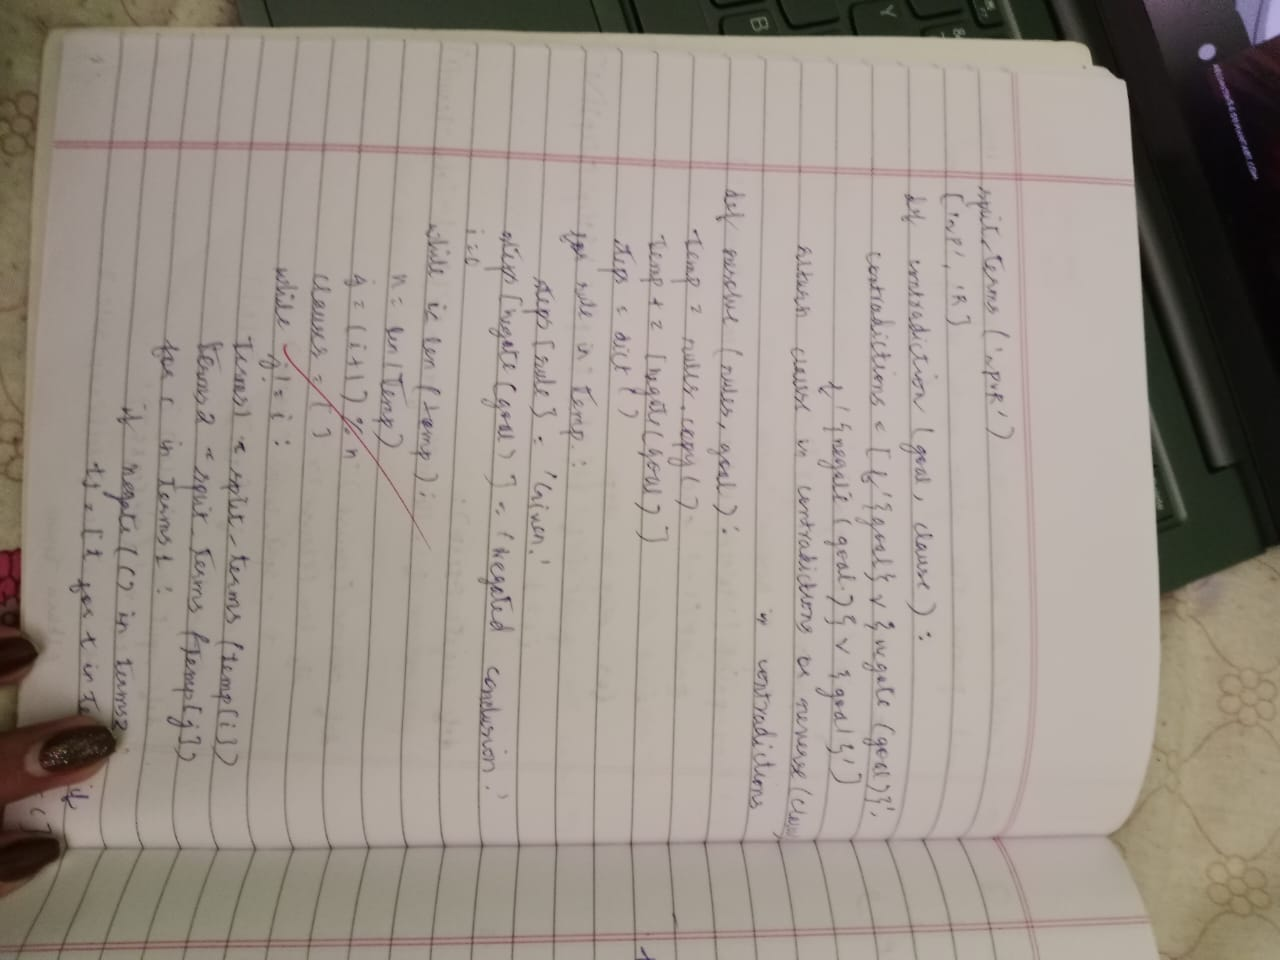 split_terms ('~PvR')
['~P', 'R]
def contradiction (goal, clause):
contradictions = [ f'{goal} v {negate (goal)}',
f'{negate (goal)} v {goal}']
return clause in contradictions or reverse (clause)
in contradictions
def resolve (rules, goal):
temp = rules.copy()
temp += [negate(goal)]
steps = dict ()
for rule in temp:
steps [rule] = 'Given.'
steps [negate (goal)] = 'Negated conclusion.'
i=0
while i< len (temp):
n = len (Temp)
j = (i+1) % n
clauses = [ ]
while j!=i:
terms1 = split_terms (temp[i])
terms2 = split_terms (temp[j])
for c in terms1:
if negate (c) in terms2
t1 = [t for t in te if